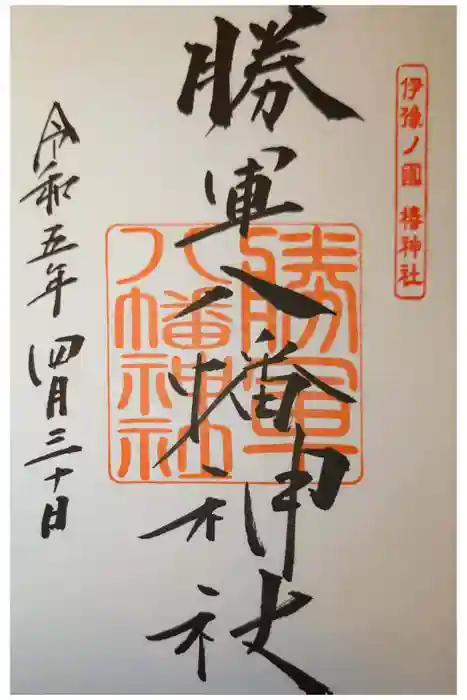 伊豫ノ國 椿神社
勝軍八幡神社
勝軍
八幡神社
令和五年 四月三十日